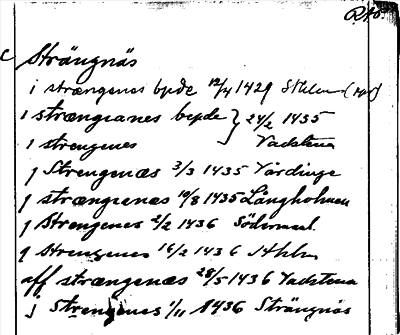 RAp.
c Strängnäs
i strængenes bpde 12/4 1429 Sthlm
i strængianes bepde } 24/2 1435
i strengenes } Vadstena
j Strengenæs 3/3 1435 Vårdinge
j strængienæs 10/8 1435 Långholmen
j Strengenes 2/2 1436 Söderm.
j strengenes 16/2 1436 Sthlm
aff strængenæs 28/5 1436 Vadstena
j Strengenes 1/11 1436 Strängnäs